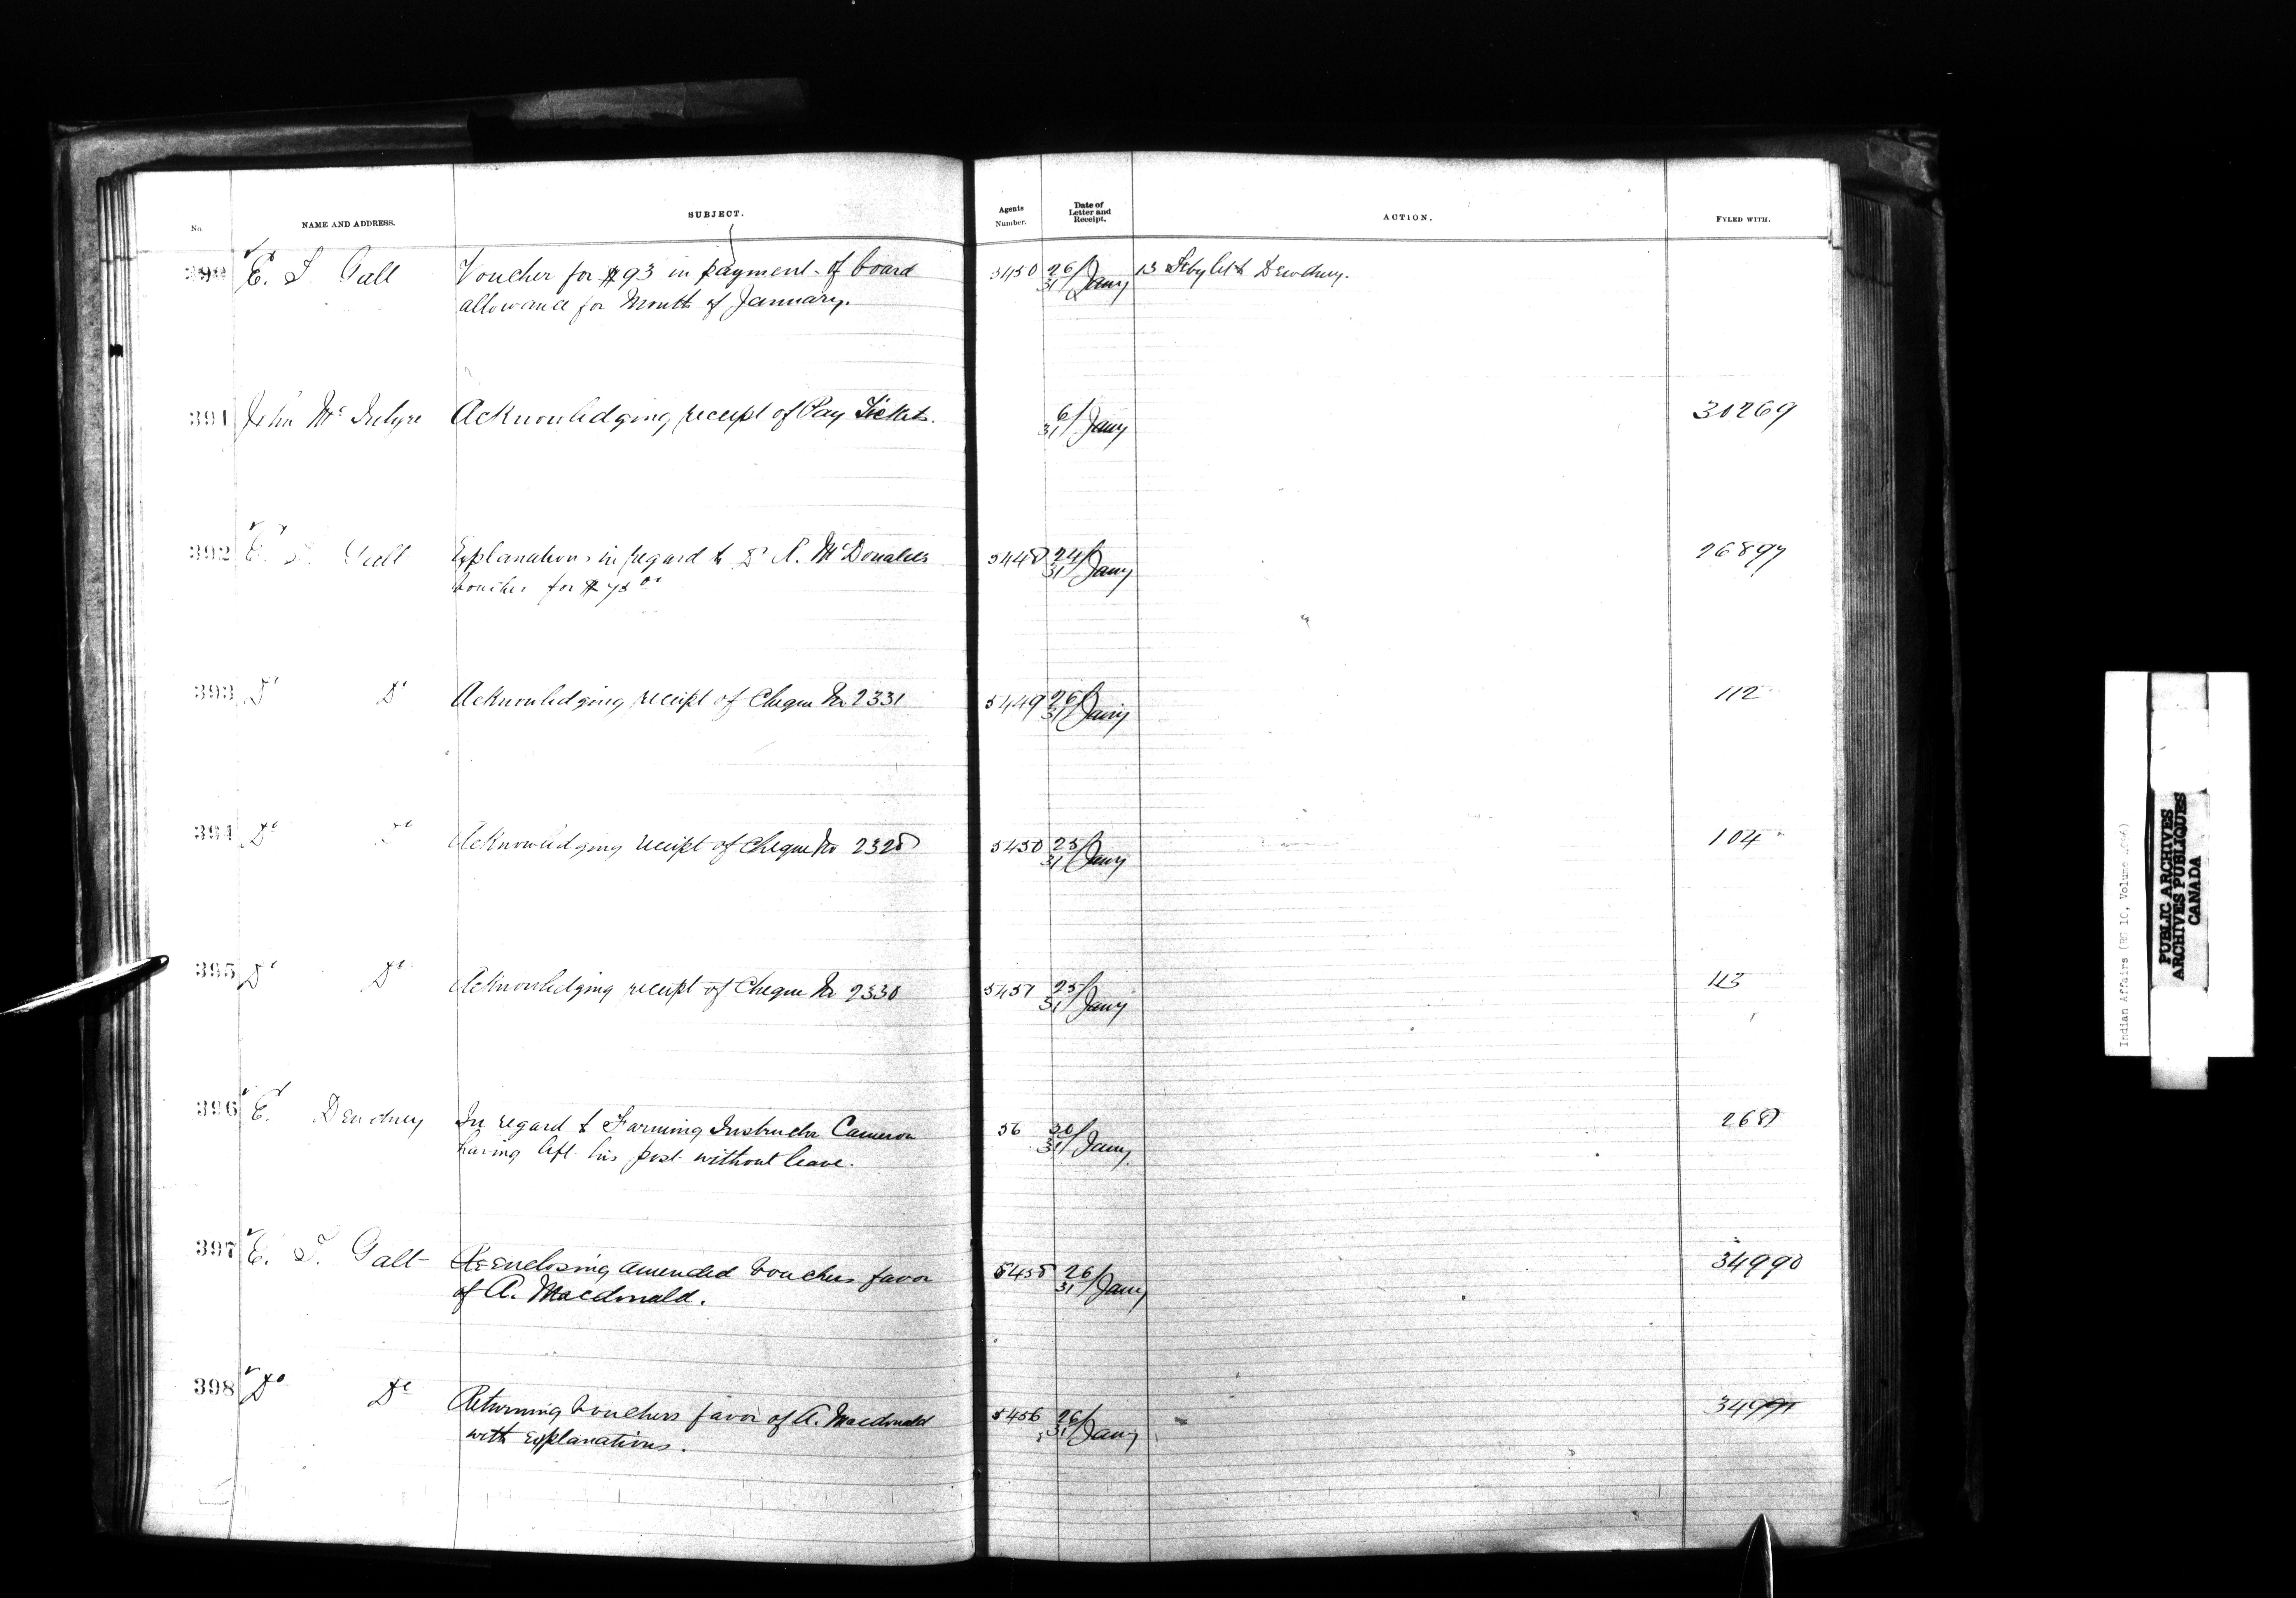 No. NAME AND ADDRESS. SUBJECT. Agents Number. Date of Letter and Receipt. ACTION. FYLED WITH.
E. T. Galt Voucher for $93 in payment of board 5430 26/31 Jany 13 Feby let to Dewdney.
allowance for Month of January.
391 John McIntyre Acknowledging receipt of Pay Tickets. 6/31 Jany 30269
392 E. T. Galt Explanations in regard to Dr A. McDonald's 5448 24/31 Jany 26897
voucher for $75 00
393 Do Do Acknowledging receipt of Cheque No 2331 5449 26/31 Jany 112
394 Do Do Acknowledging receipt of Cheque No 2328 5450 25/31 Jany 104
395 Do Do Acknowledging receipt of Cheque No 2330 5451 25/31 Jany 113
396 E. Dewdney In regard to Farming Instructor Cameron 56 30/31 Jany 268
having left his post without leave.
397 E. T. Galt Re enclosing amended vouchers favor 5455 26/31 Jany 34990
of A. Macdonald.
398 Do Do Returning vouchers favor of A. Macdonald 5456 26/31 Jany 34991
with explanations.
Indian Affairs (RG 10, Volume
PUBLIC ARCHIVES
ARCHIVES PUBLIQUES
CANADA